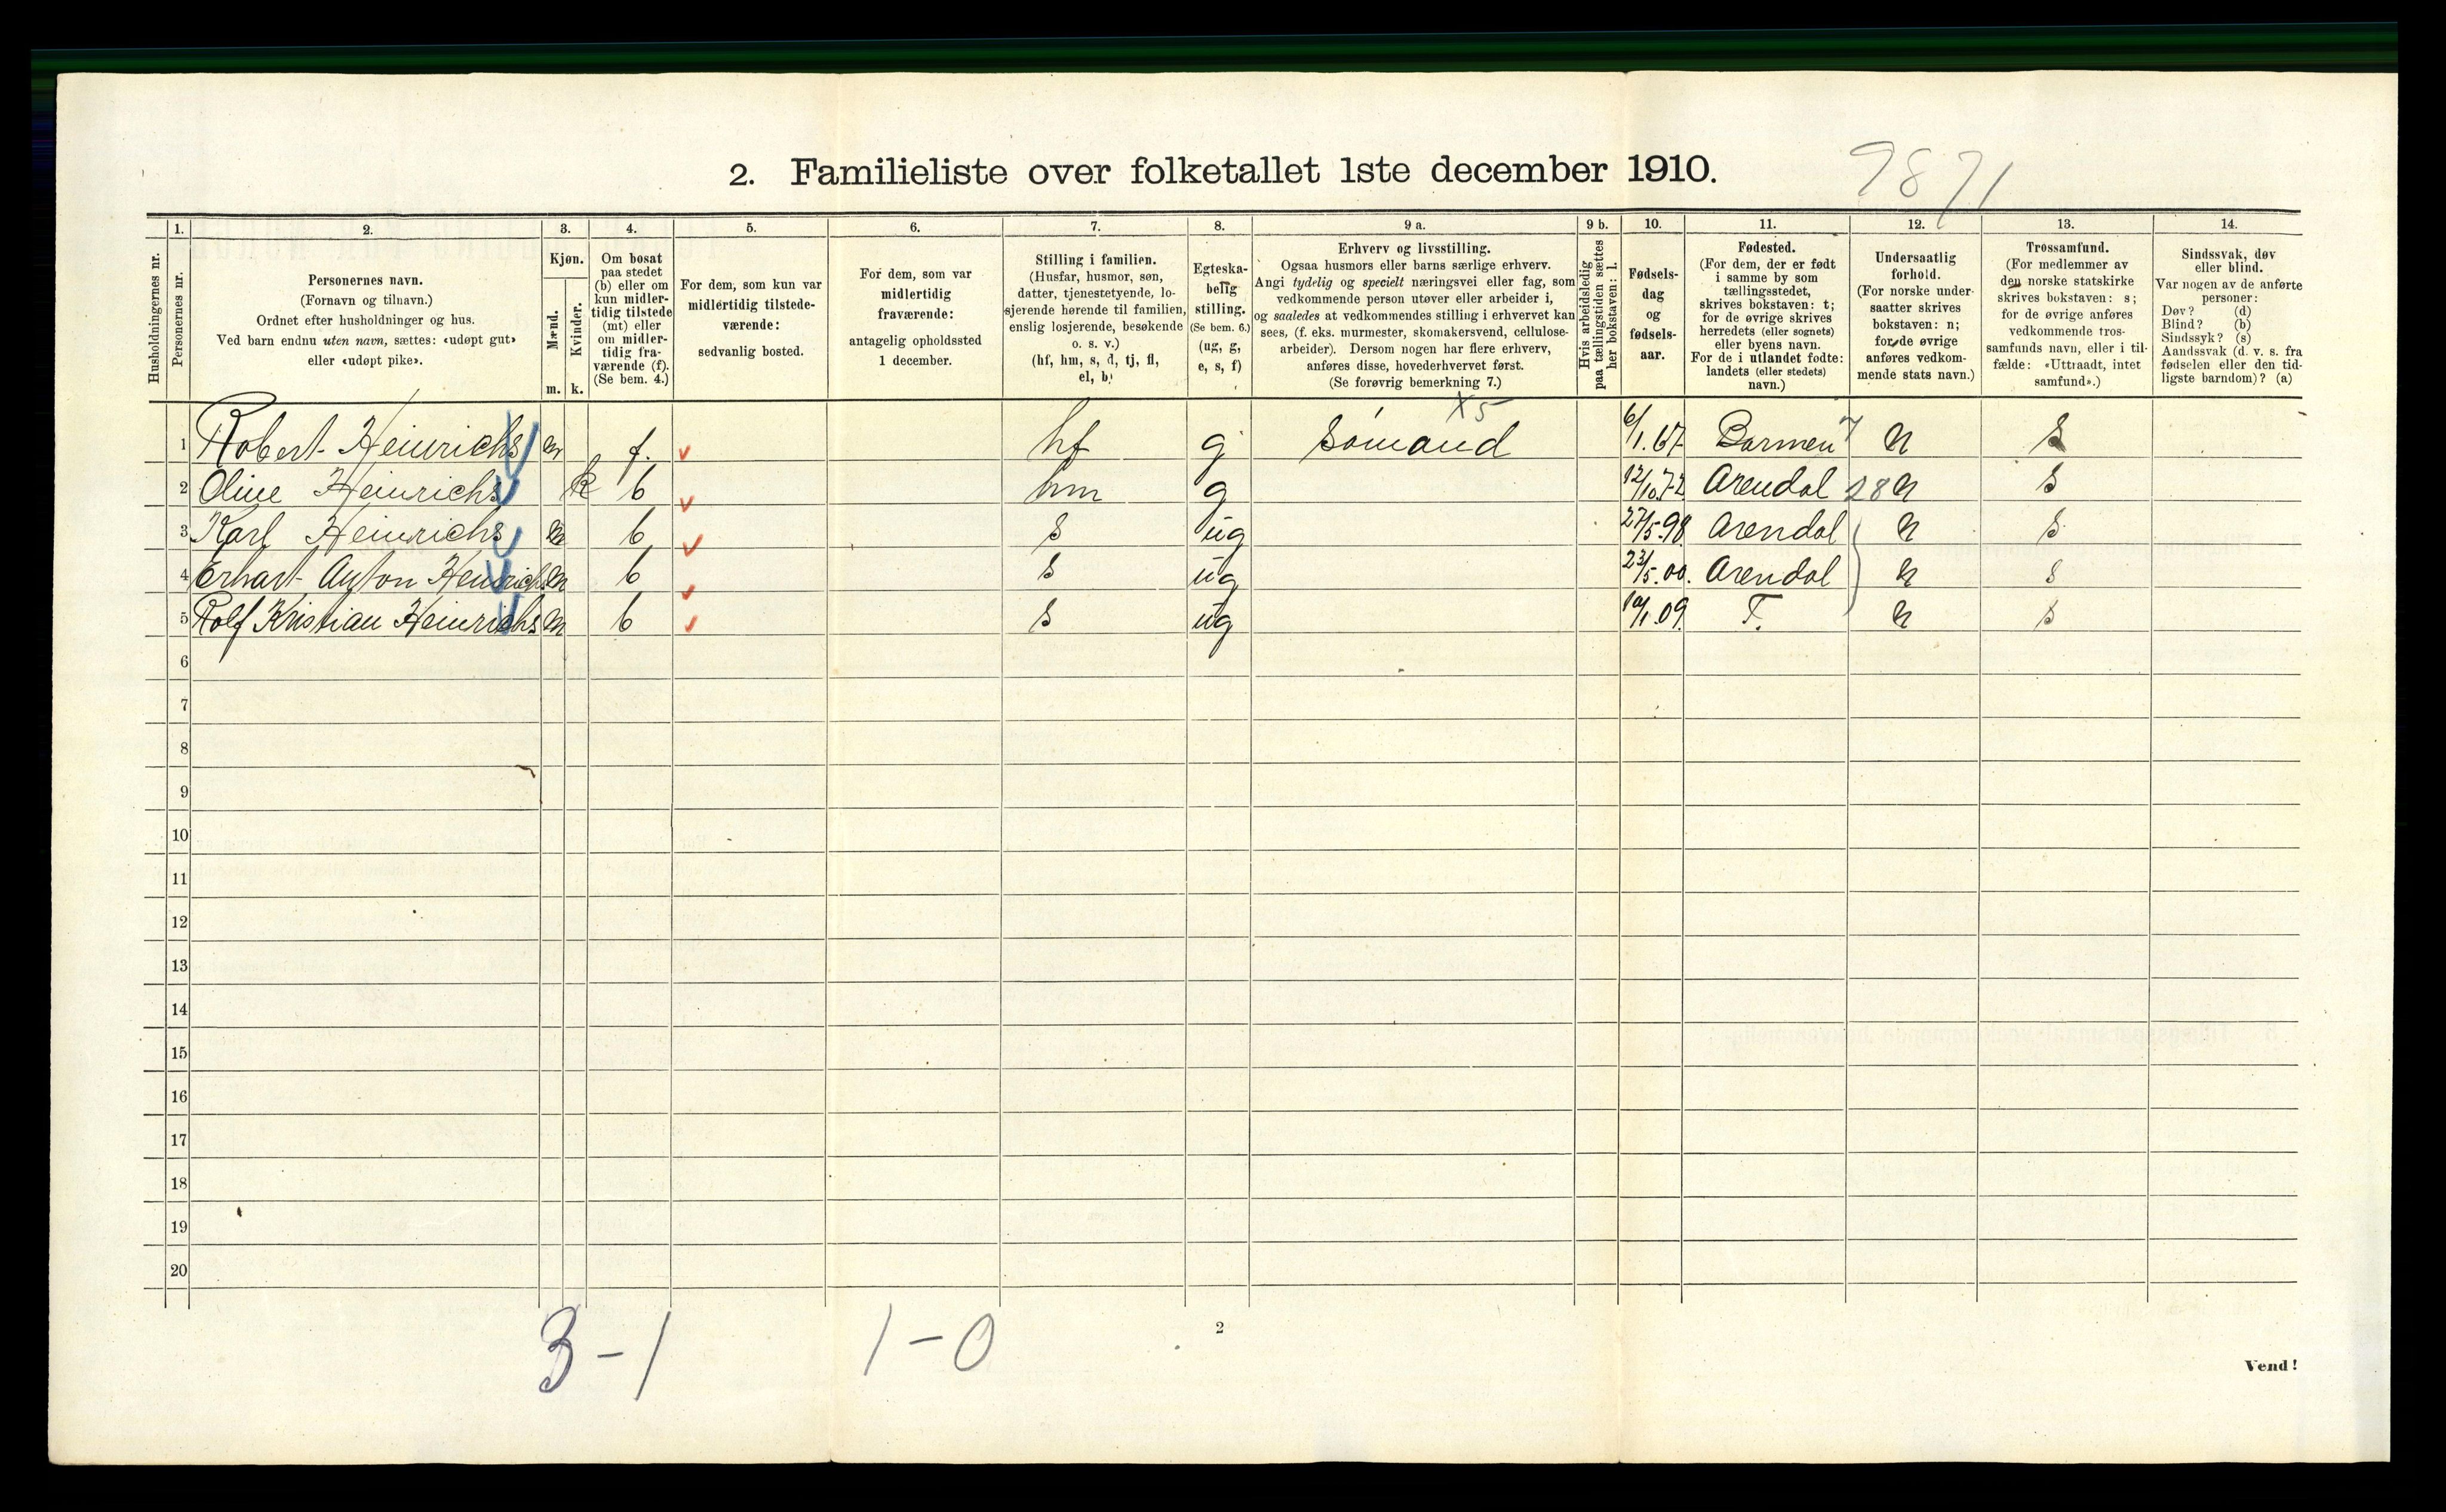 2. Familieliste over folketallet 1ste december 1910.
9871
1. 2. 3. 4. 5. 6. 7. 8. 9 a. 9 b. 10. 11. 12. 13. 14.
Husholdningernes nr.
Personernes nr.
Personernes navn.
(Fornavn og tilnavn.)
Ordnet efter husholdninger og hus.
Ved barn endnu uten navn, sættes: «udøpt gut»
eller «udøpt pike».
Kjøn.
Mænd.
m.
Kvinder.
k.
Om bosat
paa stedet
(b) eller om
kun midler-
tidig tilstede
(mt) eller
om midler-
tidig fra-
værende (f).
(Se bem. 4.)
For dem, som kun var
midlertidig tilstede-
værende:
sedvanlig bosted.
For dem, som var
midlertidig
fraværende:
antagelig opholdssted
1 december.
Stilling i familien.
(Husfar, husmor, søn,
datter, tjenestetyende, lo-
sjerende hørende til familien,
enslig losjerende, besøkende
o. s. v.)
(hf, hm, s, d, tj, fl,
el, b)
Egteska-
belig
stilling.
(Se bem. 6.)
(ug, g,
e, s, f)
Erhverv og livsstilling.
Ogsaa husmors eller barns særlige erhverv.
Angi tydelig og specielt næringsvei eller fag, som
vedkommende person utøver eller arbeider i,
og saaledes at vedkommendes stilling i erhvervet kan
sees, (f. eks. murmester, skomakersvend, cellulose-
arbeider). Dersom nogen har flere erhverv,
anføres disse, hovederhvervet først.
(Se forøvrig bemerkning 7.)
Hvis arbeidsledig
paa tællingstiden sættes
her bokstaven: l.
Fødsels-
dag
og
fødsels-
aar.
Fødested.
(For dem, der er født
i samme by som
tællingsstedet,
skrives bokstaven: t;
for de øvrige skrives
herredets (eller sognets)
eller byens navn.
For de i utlandet fødte:
landets (eller stedets)
navn.)
Undersaatlig
forhold.
(For norske under-
saatter skrives
bokstaven: n;
for de øvrige
anføres vedkom-
mende stats navn.)
Trossamfund.
(For medlemmer av
den norske statskirke
skrives bokstaven: s;
for de øvrige anføres
vedkommende tros-
samfunds navn, eller i til-
fælde: «Uttraadt, intet
samfund».)
Sindssvak, døv
eller blind.
Var nogen av de anførte
personer:
Døv? (d)
Blind? (b)
Sindssyk? (s)
Aandssvak (d. v. s. fra
fødselen eller den tid-
ligste barndom)? (a)
X5
1 Robert Heinrichs m f. hf g sömand 6/1.67 Barmen 7 n s
2 Oline Heinrichs k b hm g 12/10.72 Arendal 28 n s
3 Karl Heinrichs m b s ug 27/5.98 Arendal n s
4 Erhart Anton Heinrichs m b s ug 23/5.00. Arendal n s
5 Rolf Kristian Heinrichs m b s ug 10/1.09. T. n s
6
7
8
9
10
11
12
13
14
15
16
17
18
19
20
3-1 1-0
2
Vend!